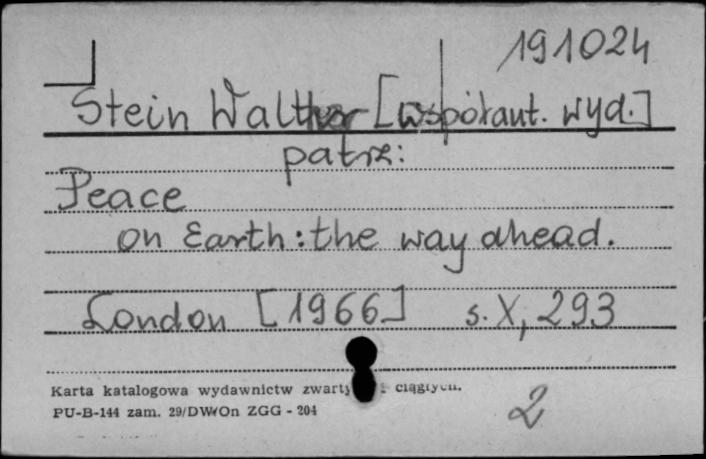 191024
Stein Walther [współaut. wyd.]
patrz:
Peace
on Earth: the way ahead.
London [1966] s. X, 293
Karta katalogowa wydawnictw ciągłych.
PU-B-144 zam. 29/DWOn ZGG - 204
2